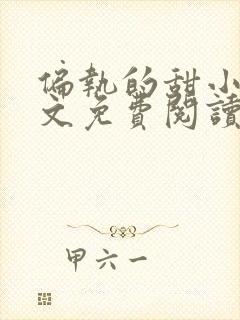 偏執的甜小
文免費閱讀
甲六一